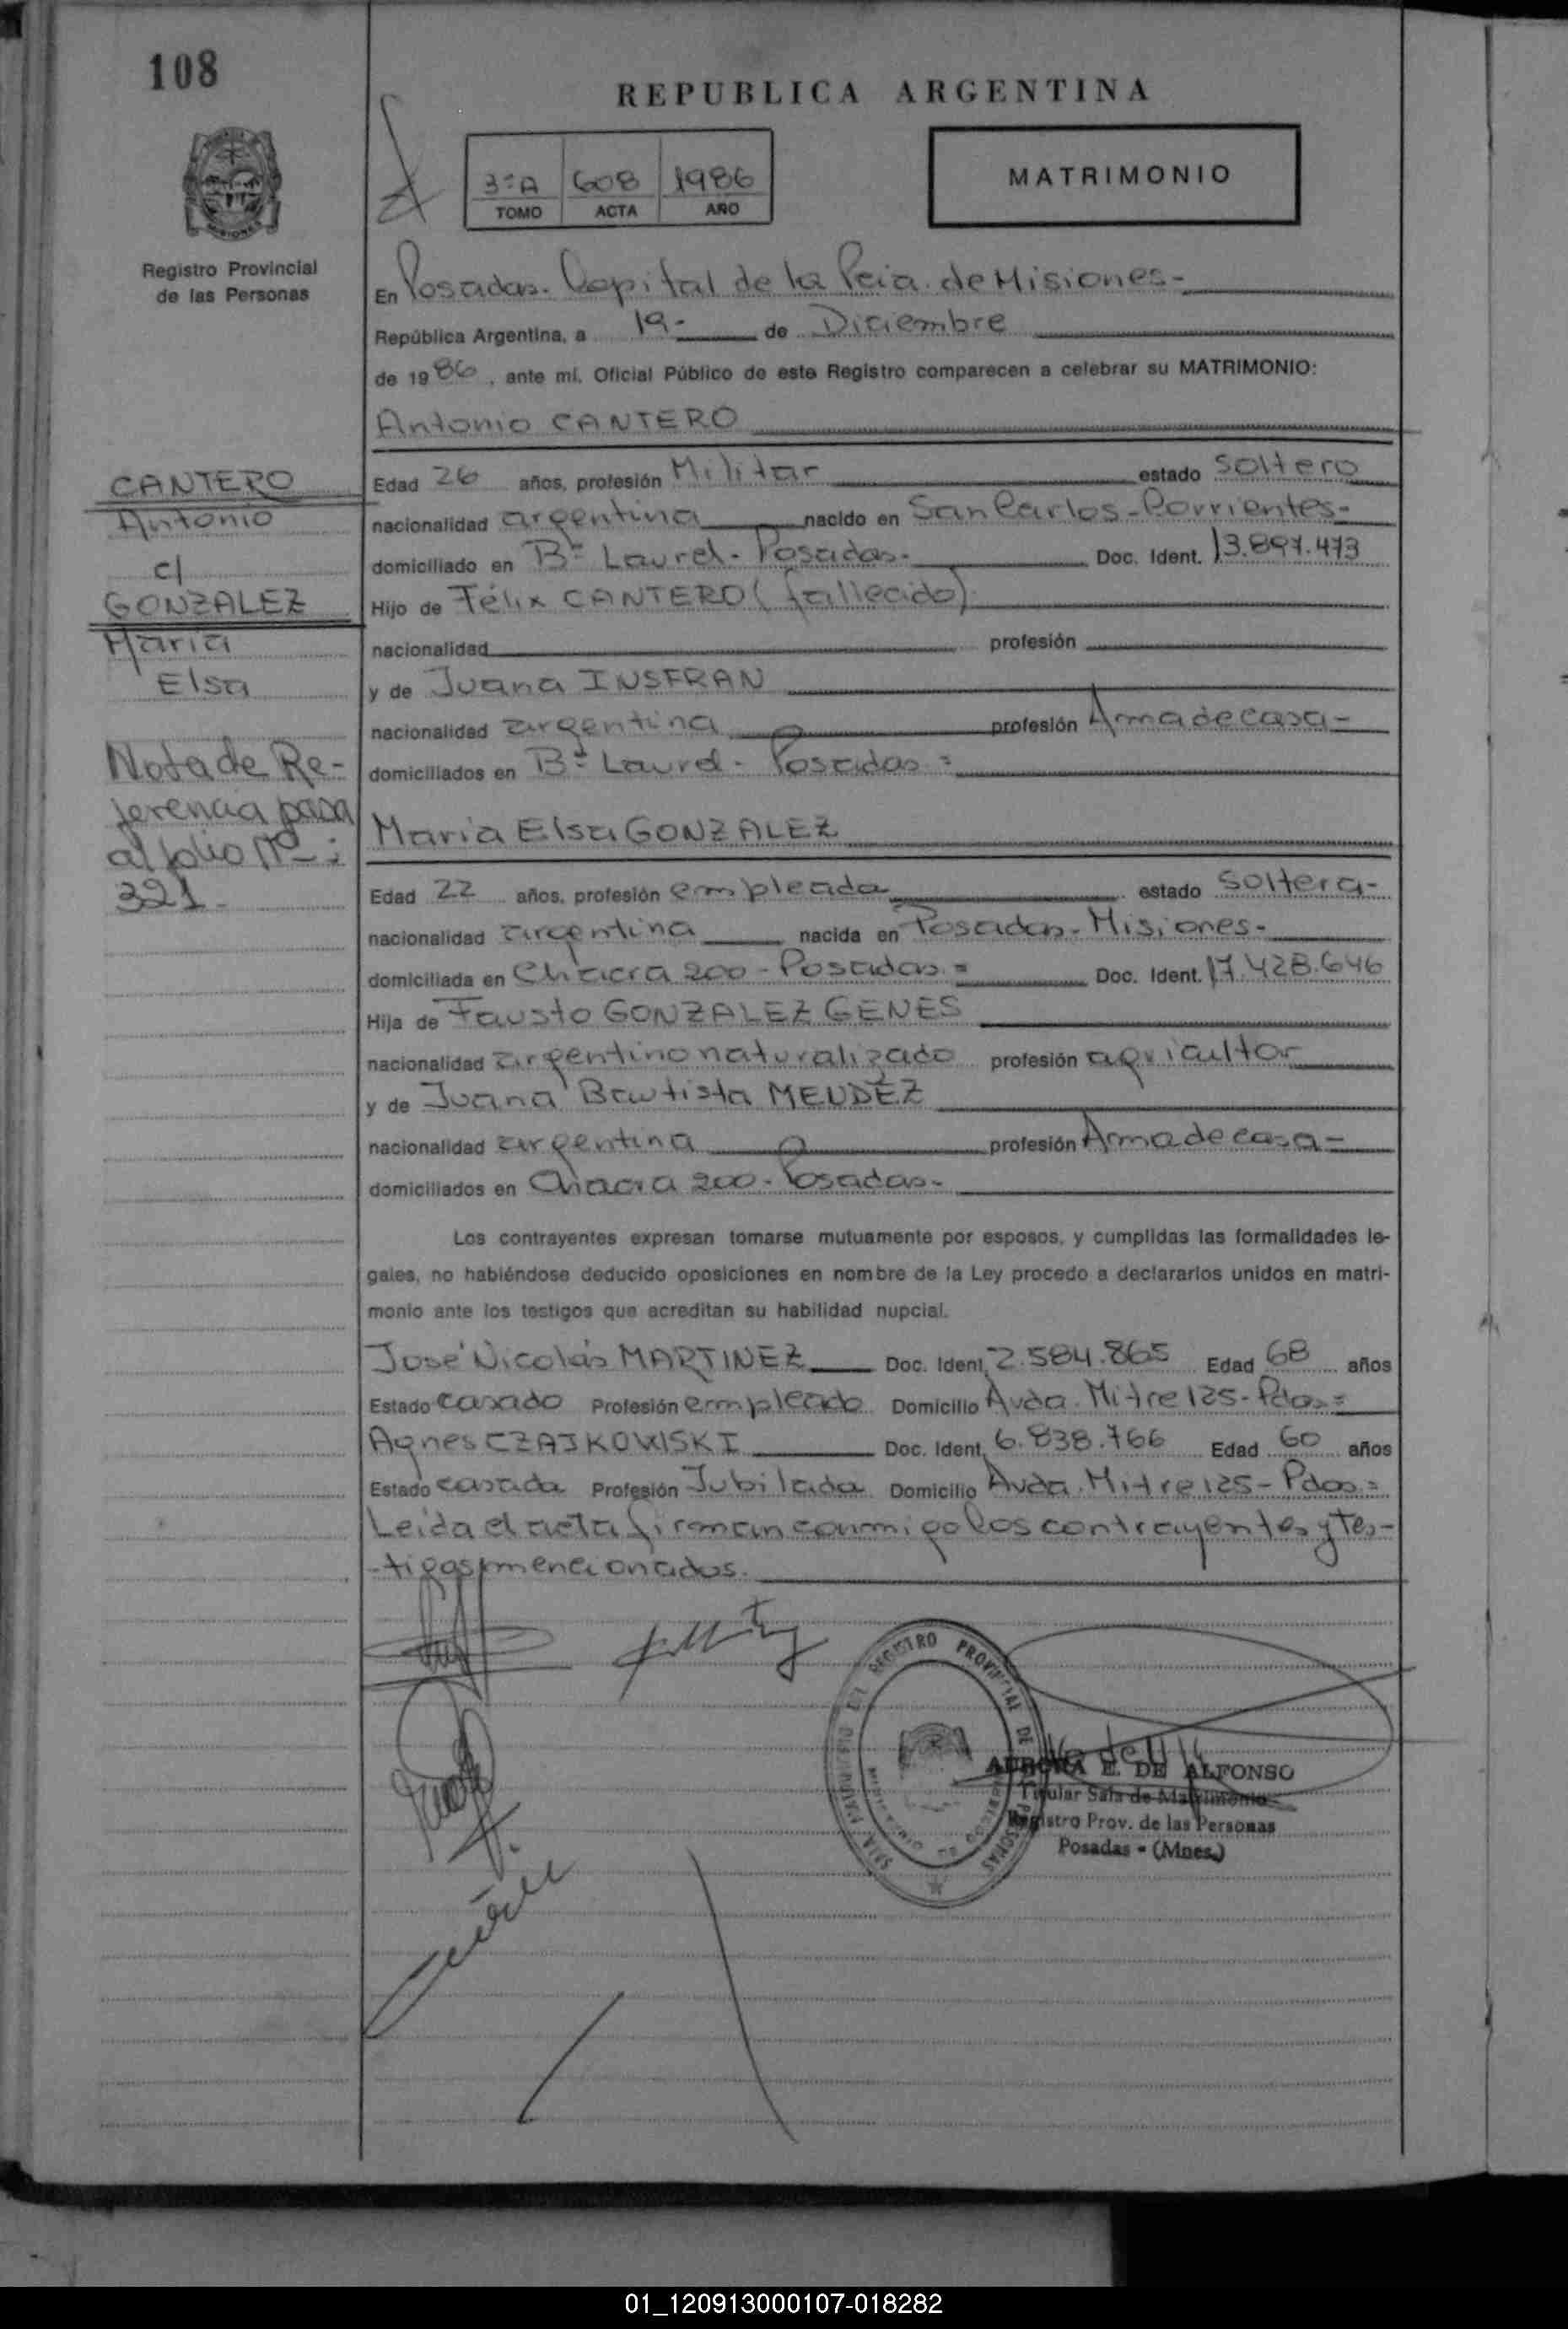 108
REPUBLICA ARGENTINA
MATRIMONIO
3ºA 608 1986
TOMO ACTA AÑO
MISIONES
Registro Provincial
de las Personas
En Posadas. Capital de la Pcia. de Misiones-
República Argentina, a 19- de Diciembre
de 1986, ante mí, Oficial Público de este Registro comparecen a celebrar su MATRIMONIO:
Antonio CANTERO
CANTERO
Antonio
c/
GONZALEZ
Maria
Elsa
Nota de Re-
ferencia pasa
al folio Nº:
321-
Edad 26 años, profesión Militar estado soltero
nacionalidad argentina nacido en San Carlos-Corrientes-
domiciliado en Bº Laurel- Posadas- Doc. Ident. 13.897.473
Hijo de Félix CANTERO (fallecido)
nacionalidad profesión
y de Juana INSFRAN
nacionalidad argentina profesión Ama de casa-
domiciliados en Bº Laurel- Posadas=
Maria Elsa GONZALEZ
Edad 22 años, profesión empleada estado soltera-
nacionalidad argentina nacida en Posadas- Misiones-
domiciliada en Chacra 200- Posadas= Doc. Ident. 17.428.646
Hija de Fausto GONZALEZ GENES
nacionalidad argentino naturalizado profesión agricultor
y de Juana Bautista MENDEZ
nacionalidad argentina profesión Ama de casa=
domiciliados en Chacra 200- Posadas-
Los contrayentes expresan tomarse mutuamente por esposos, y cumplidas las formalidades le-
gales, no habiéndose deducido oposiciones en nombre de la Ley procedo a declararlos unidos en matri-
monio ante los testigos que acreditan su habilidad nupcial.
José Nicolás MARTINEZ Doc. Ident. 2.584.865 Edad 68 años
Estado casado Profesión empleado Domicilio Avda. Mitre 125- Pdas=
Agnes CZAJKOWISKI Doc. Ident. 6.838.766 Edad 60 años
Estado casada Profesión Jubilada Domicilio Avda. Mitre 125- Pdas=
Leida el acta firman conmigo los contrayentes y tes-
-tigos mencionados.
REGISTRO PROVINCIAL DE PERSONAS
AURORA E. DE ALFONSO
Titular Sala de Matrimonio
Registro Prov. de las Personas
Posadas - (Mnes.)
01_120913000107-018282